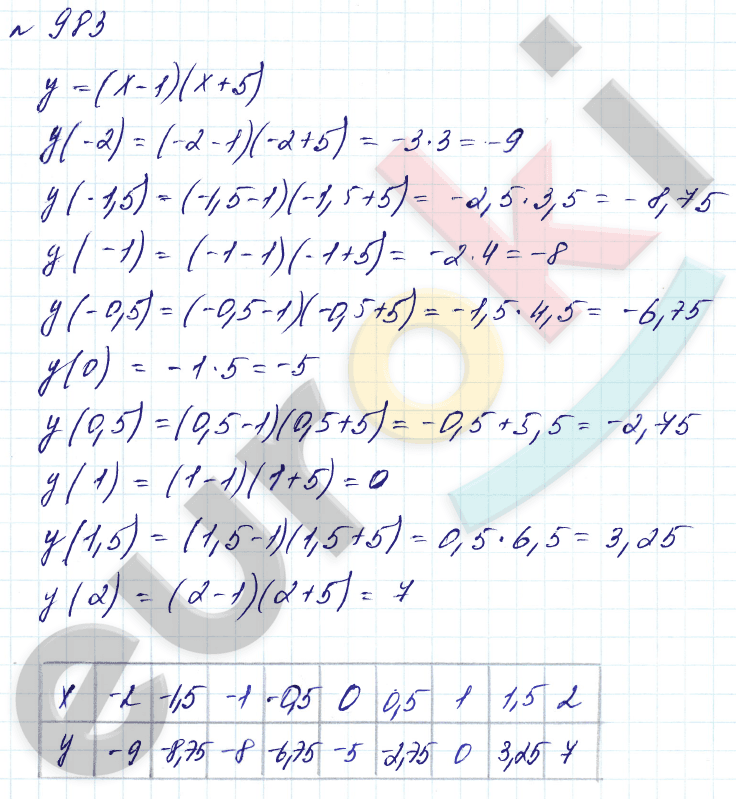 № 983
y = (x-1)(x+5)
y(-2) = (-2-1)(-2+5) = -3·3 = -9
y(-1,5) = (-1,5-1)(-1,5+5) = -2,5·3,5 = -8,75
y(-1) = (-1-1)(-1+5) = -2·4 = -8
y(-0,5) = (-0,5-1)(-0,5+5) = -1,5·4,5 = -6,75
y(0) = -1·5 = -5
y(0,5) = (0,5-1)(0,5+5) = -0,5+5,5 = -2,75
y(1) = (1-1)(1+5) = 0
y(1,5) = (1,5-1)(1,5+5) = 0,5·6,5 = 3,25
y(2) = (2-1)(2+5) = 7
x -2 -1,5 -1 -0,5 0 0,5 1 1,5 2
y -9 -8,75 -8 -6,75 -5 -2,75 0 3,25 7
euroki